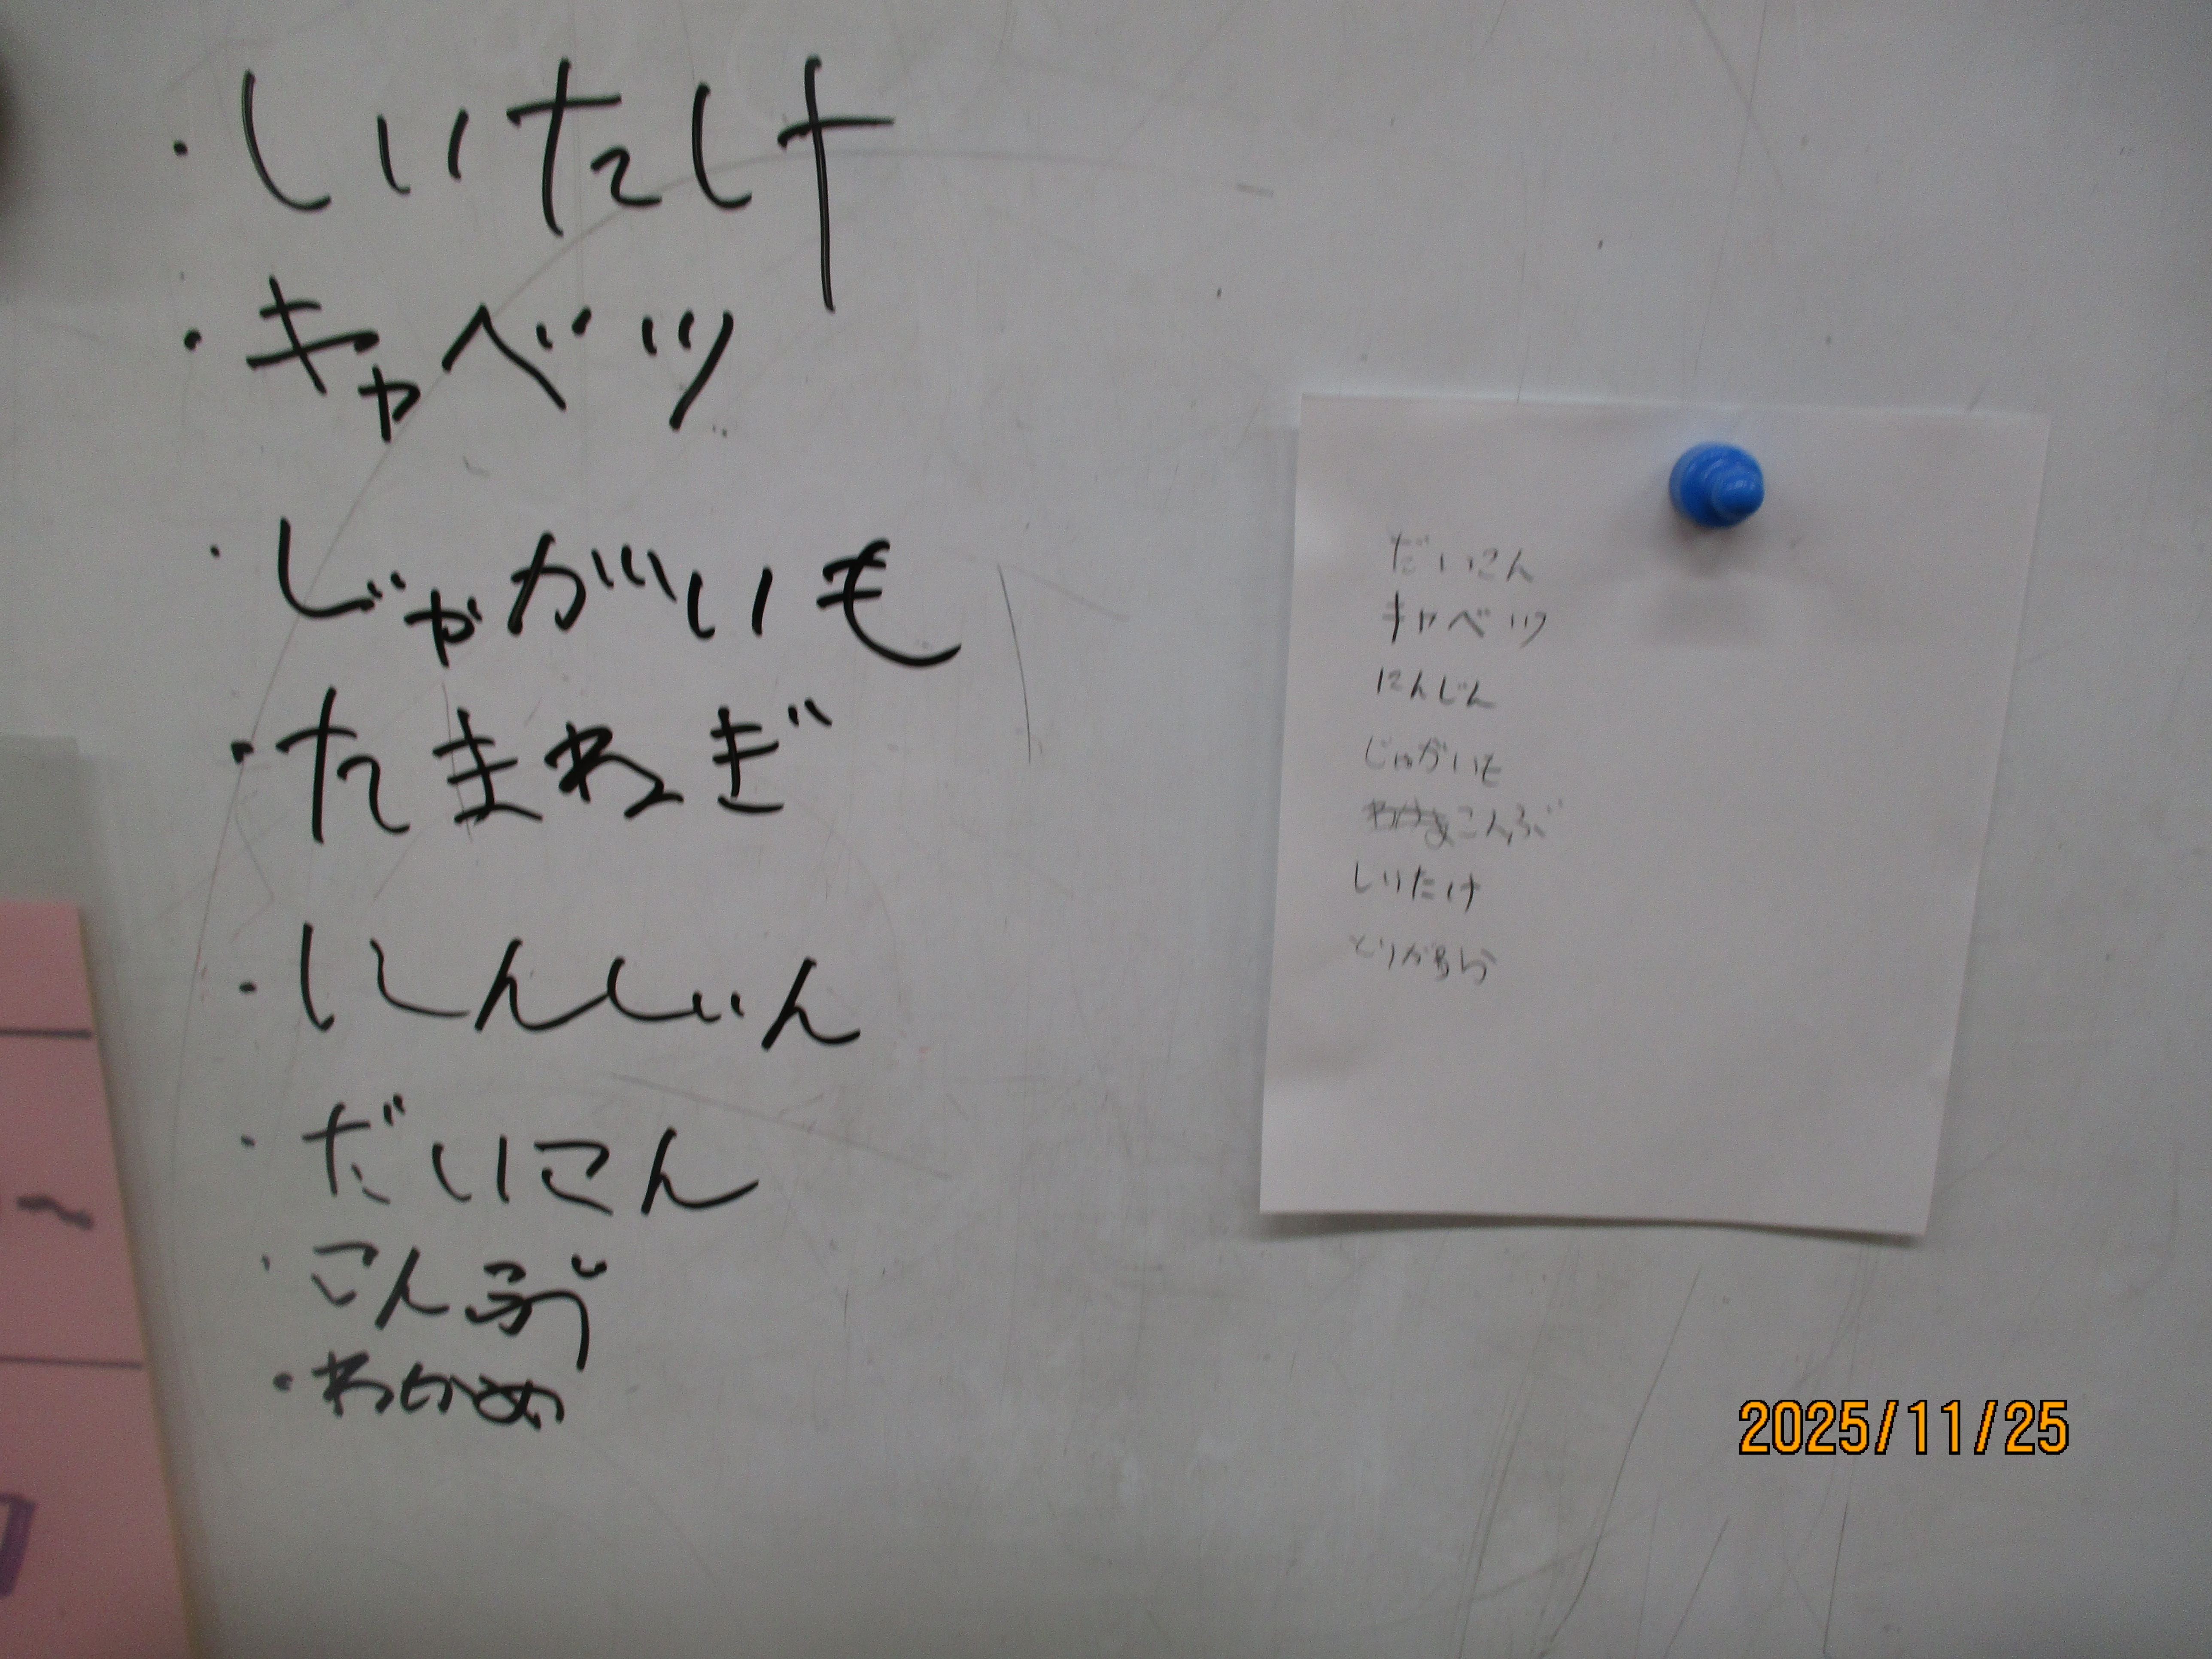 ・しいたけ
・キャベツ
・じゃがいも
・たまねぎ
・にんじん
・だいこん
・こんぶ
・わかめ
だいこん
キャベツ
にんじん
じゃがいも
こんぶ
しいたけ
とりがらら
2025/11/25